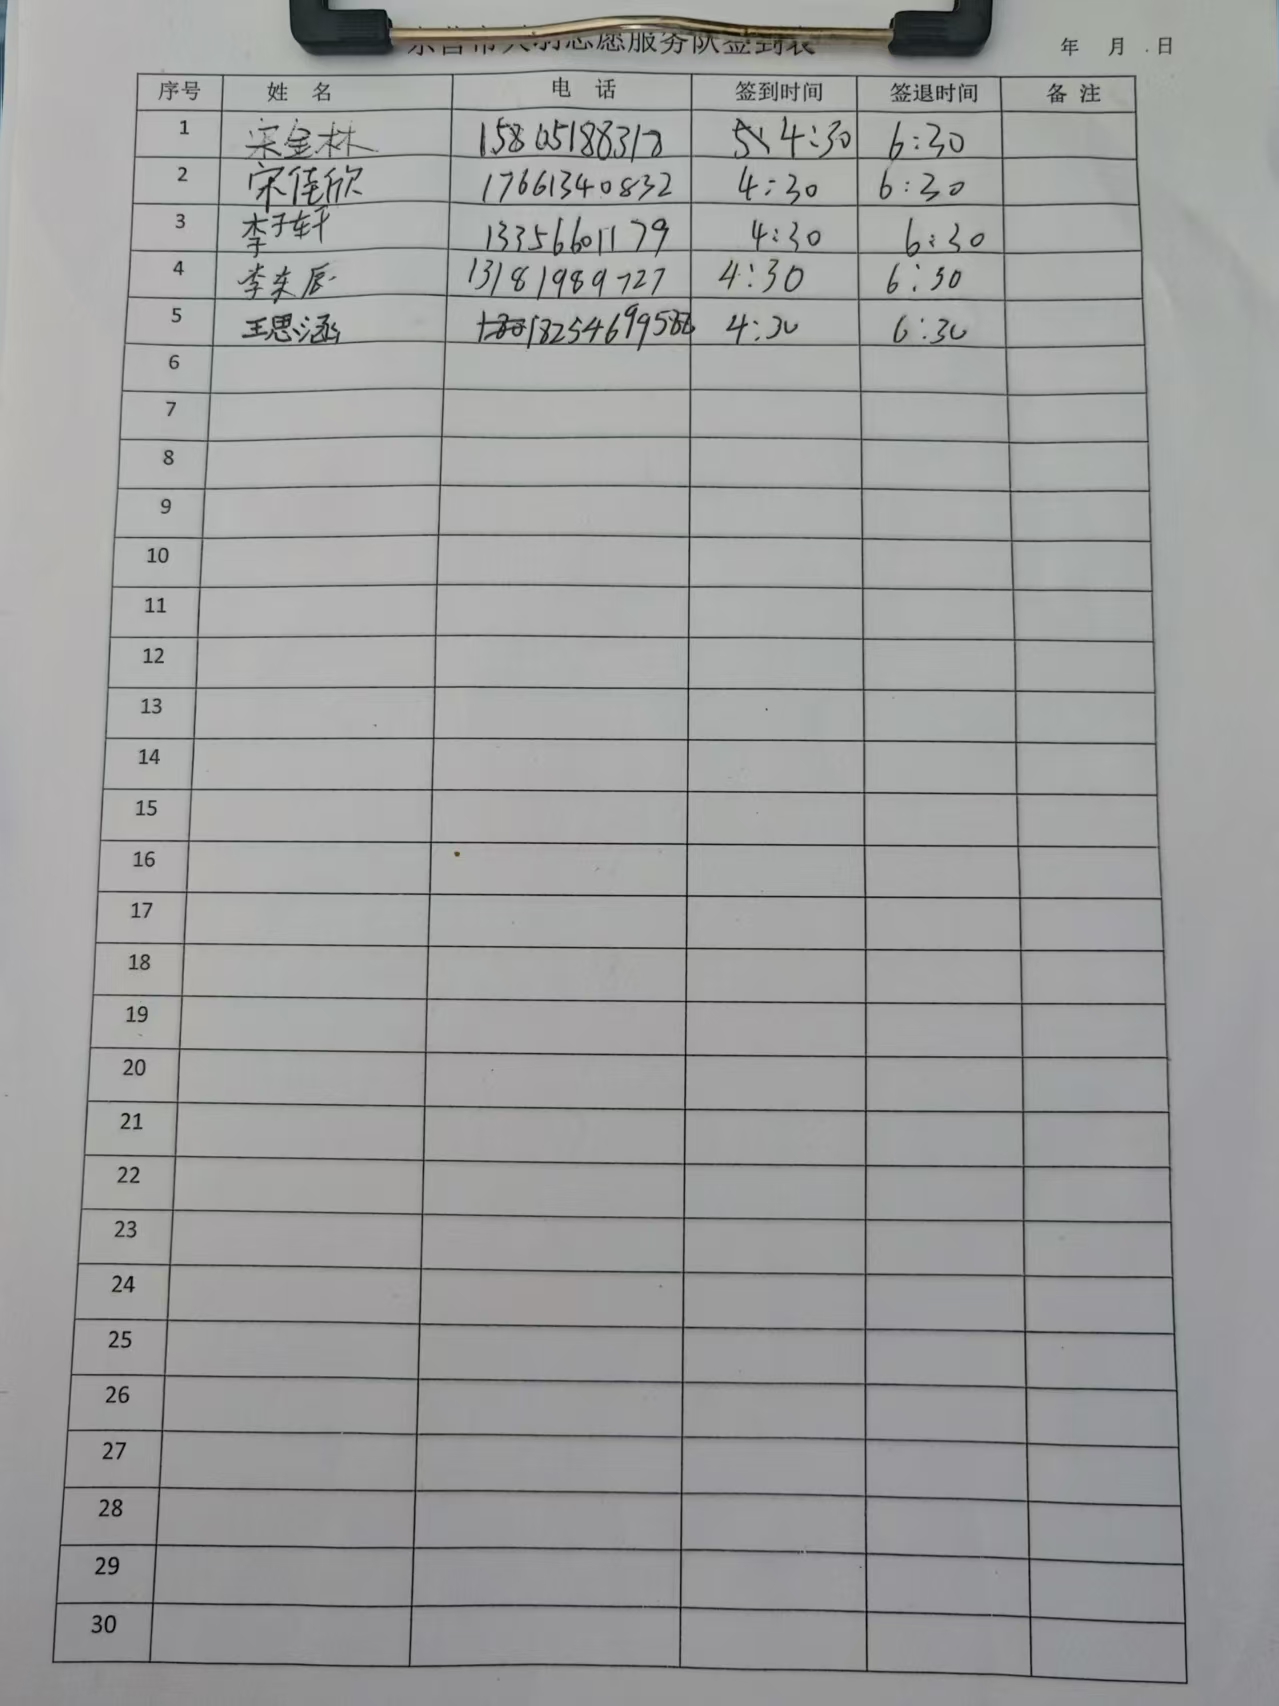 志愿服务队签到表
年 月 日
序号 姓 名 电 话 签到时间 签退时间 备 注
1 宋金林 4:30 6:30
2 宋佳欣 17661340832 4:30 6:30
3 李子轩 13356601179 4:30 6:30
4 李东辰 13181989727 4:30 6:30
5 王思涵 18254699586 4:30 6:30
6
7
8
9
10
11
12
13
14
15
16
17
18
19
20
21
22
23
24
25
26
27
28
29
30